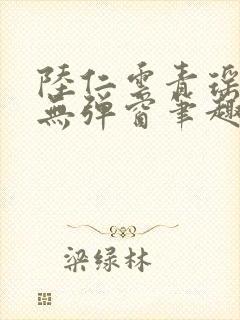 陸仁雲青瑤
無彈窗筆趣
梁绿林